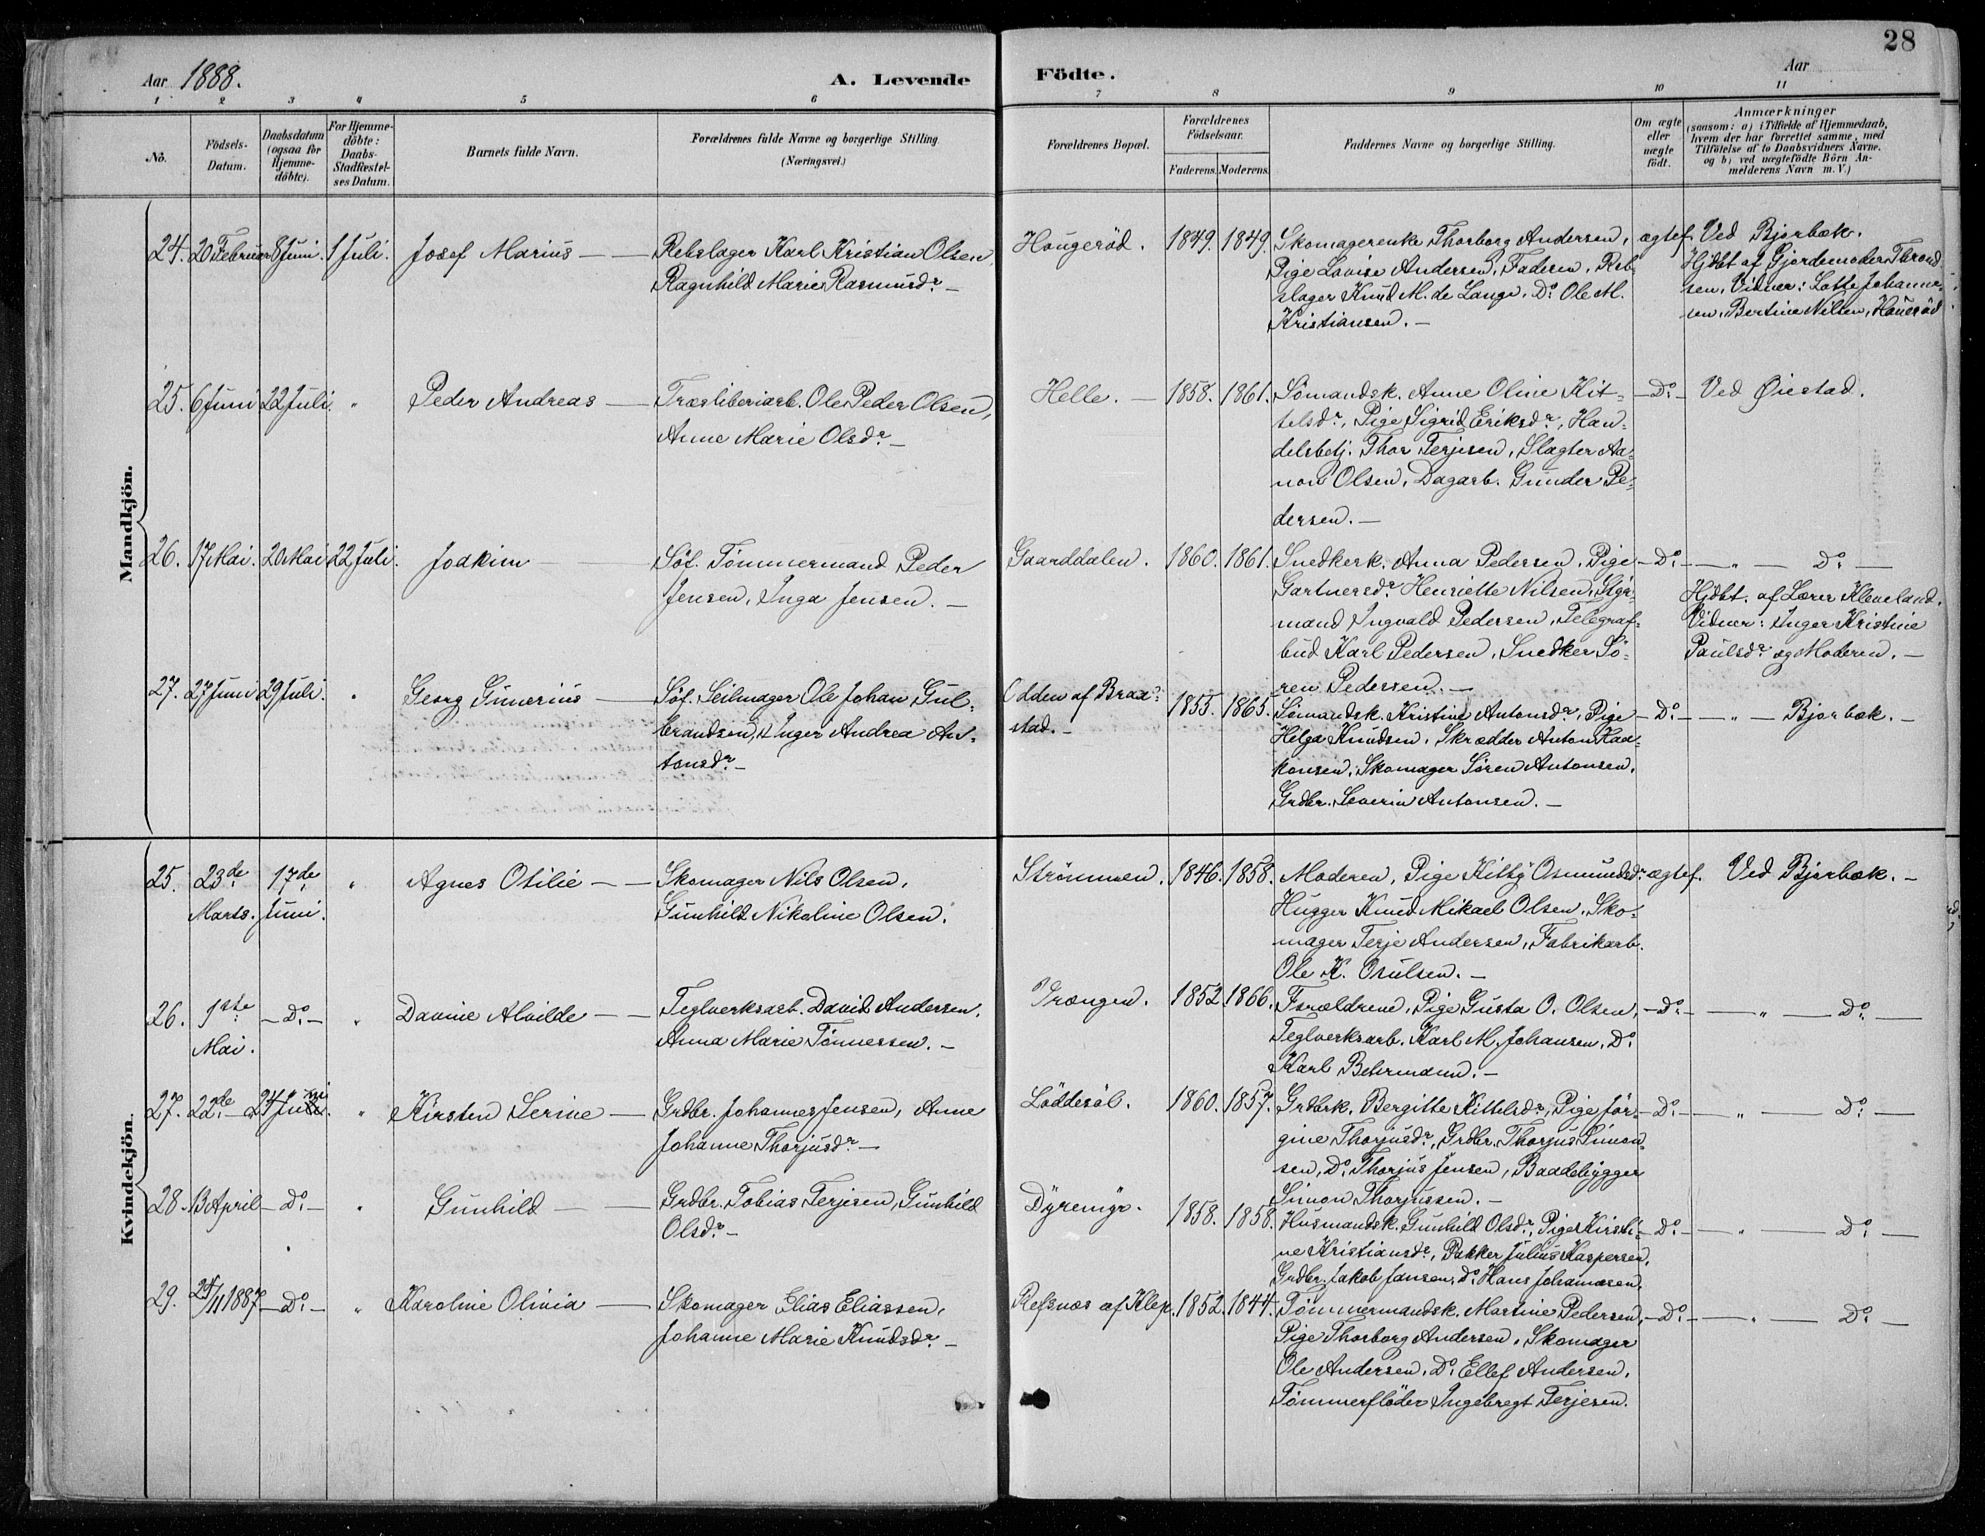 28
Aar 1888.
A. Levende
Födte.
Aar
1 2 3 4 5 6 7 8 9 10 11
No.
Födsels-
Datum.
Daabsdatum
(ogsaa for
Hjemme-
döbte).
For Hjemme-
döbte:
Daabs-
Stadfæstel-
ses Datum.
Barnets fulde Navn.
Forældrenes fulde Navne og borgerlige Stilling
(Næringsvei.)
Forældrenes Bopæl.
Forældrenes
Födselsaar.
Faderens. Moderens.
Faddernes Navne og borgerlige Stilling.
Om ægte
eller
uægte
födt.
Anmærkninger
(saasom: a) i Tilfælde af Hjemmedaab,
hvem der har forrettet samme, med
Tilföielse af to Daabsvidners Navne.
og b) ved uægtefödte Börn An-
melderens Navn m. V.)
Mandkjön.
24. 20 Februar 8 Juni. 1 Juli. Josef Marius —
Rebslager Karl Kristian Olsen,
Ragnhild Marie Rasmusdr. —
Hougeröd. 1849. 1849.
Skomagerenke Thorborg Andersen,
Pige Lovise Andersen, Faderen, Reb-
slager Knud M. de Lange, Do Ole M.
Kristiansen. —
ægtef.
Ved Bjorbæk.
Hjdbt af Gjordemoder Thrond-
sen, Vidner: Lotte Johanne-
sen, Bertine Nilsen, Houeröd
25. 6 Juni 22 Juli. " Peder Andreas —
Træsliberiarb. Ole Peder Olsen,
Anne Marie Olsdr. —
Helle. — 1858. 1861.
Sömandsk. Anne Oline Kit-
telsdr, Pige Sigrid Eriksdr, Han-
delsbetj. Thor Terjesen, Slagter Aa-
non Olsen, Dagarb. Gunder Pe-
dersen. —
— Do —
Ved Öiestad.
26. 17 Mai. 20 Mai 22 Juli. Joakim —
Söf. Tömmermand Peder
Jensen, Inga Jensen. —
Gaarddalen. 1860. 1861.
Snedkerk. Anna Pedersen, Pige
Gartnersdr Henriette Nilsen, Styr-
mand Ingvald Pedersen, Telegraf-
bud Karl Pedersen, Snedker Sö-
ren Pedersen. —
— Do —
— " — Do —
Hjdbt. af Lærer Kleveland.
Vidner: Inger Kristine
Paulsdr og Moderen. —
27. 27 Juni 29 Juli. " Georg Gunerius —
Söf. Seilmager Ole Johan Gul-
brandsen, Inger Andrea An-
tonsdr —
Odden af Braa-
stad. —
1855. 1865.
Sömandsk. Kristine Antonsdr, Pige
Helga Knudsen, Skrædder Anton Haa-
konsen, Skomager Sören Antonsen,
Grdbr. Severin Antonsen. —
— Do —
— " — Bjorbæk. —
Kvindekjön.
25. 23de
Marts.
17de
Juni.
" Agnes Otilie —
Skomager Nils Olsen,
Gunhild Nikoline Olsen.
Strömmen. 1846. 1858.
Moderen, Pige Kitty Osmundsdr
Hugger Knud Mikael Olsen, Sko-
mager Terje Andersen, Fabrikarb.
Ole K. Osulsen. —
ægtef.
Ved Bjorbæk. —
26. 1ste
Mai.
— Do — " Davine Alvilde —
Teglverksarb. David Andersen,
Anna Marie Tönnessen. —
Vrængen. 1852. 1866.
Forældrene, Pige Gusta O. Olsen,
Teglverksarb. Karl M. Johansen, Do
Karl Behrmann. —
— Do —
— " — Do —
27. 22de — 24 Juni. " Kirsten Serine —
Grdbr. Johannes Jensen, Anne
Johanne Thorjusdr —
Löddesöl. 1860. 1857.
Grdbrk. Bergitte Kittelsdr, Pige Jör-
gine Thorjusdr, Grdbr. Thorjus Simon-
sen, Do Thorjus Jensen, Baadebygger
Simon Thorjussen. —
— Do —
— " — Do —
28. 13 April — Do — " Gunhild —
Grdbr. Tobias Terjesen, Gunhild
Olsdr —
Dyremyr. 1858. 1858.
Husmandsk. Gunhild Olsdr, Pige Kirsti-
ne Kristiansdr, Pakker Julius Kaspersen,
Grdbr. Jakob Jansen, Do Hans Johansen,
— Do —
— " — Do —
29. 25/11 1887 — Do — " Karoline Olivia —
Skomager Elias Eliassen,
Johanne Marie Knudsdr —
Refsnæs af Klep. 1852. 1844.
Tömmermandsk. Martine Pedersen,
Pige Thorborg Andersen, Skomager
Ole Andersen, Do Ellef Andersen,
Tömmerflöder Ingebregt Terjesen.
— Do —
— " — Do —